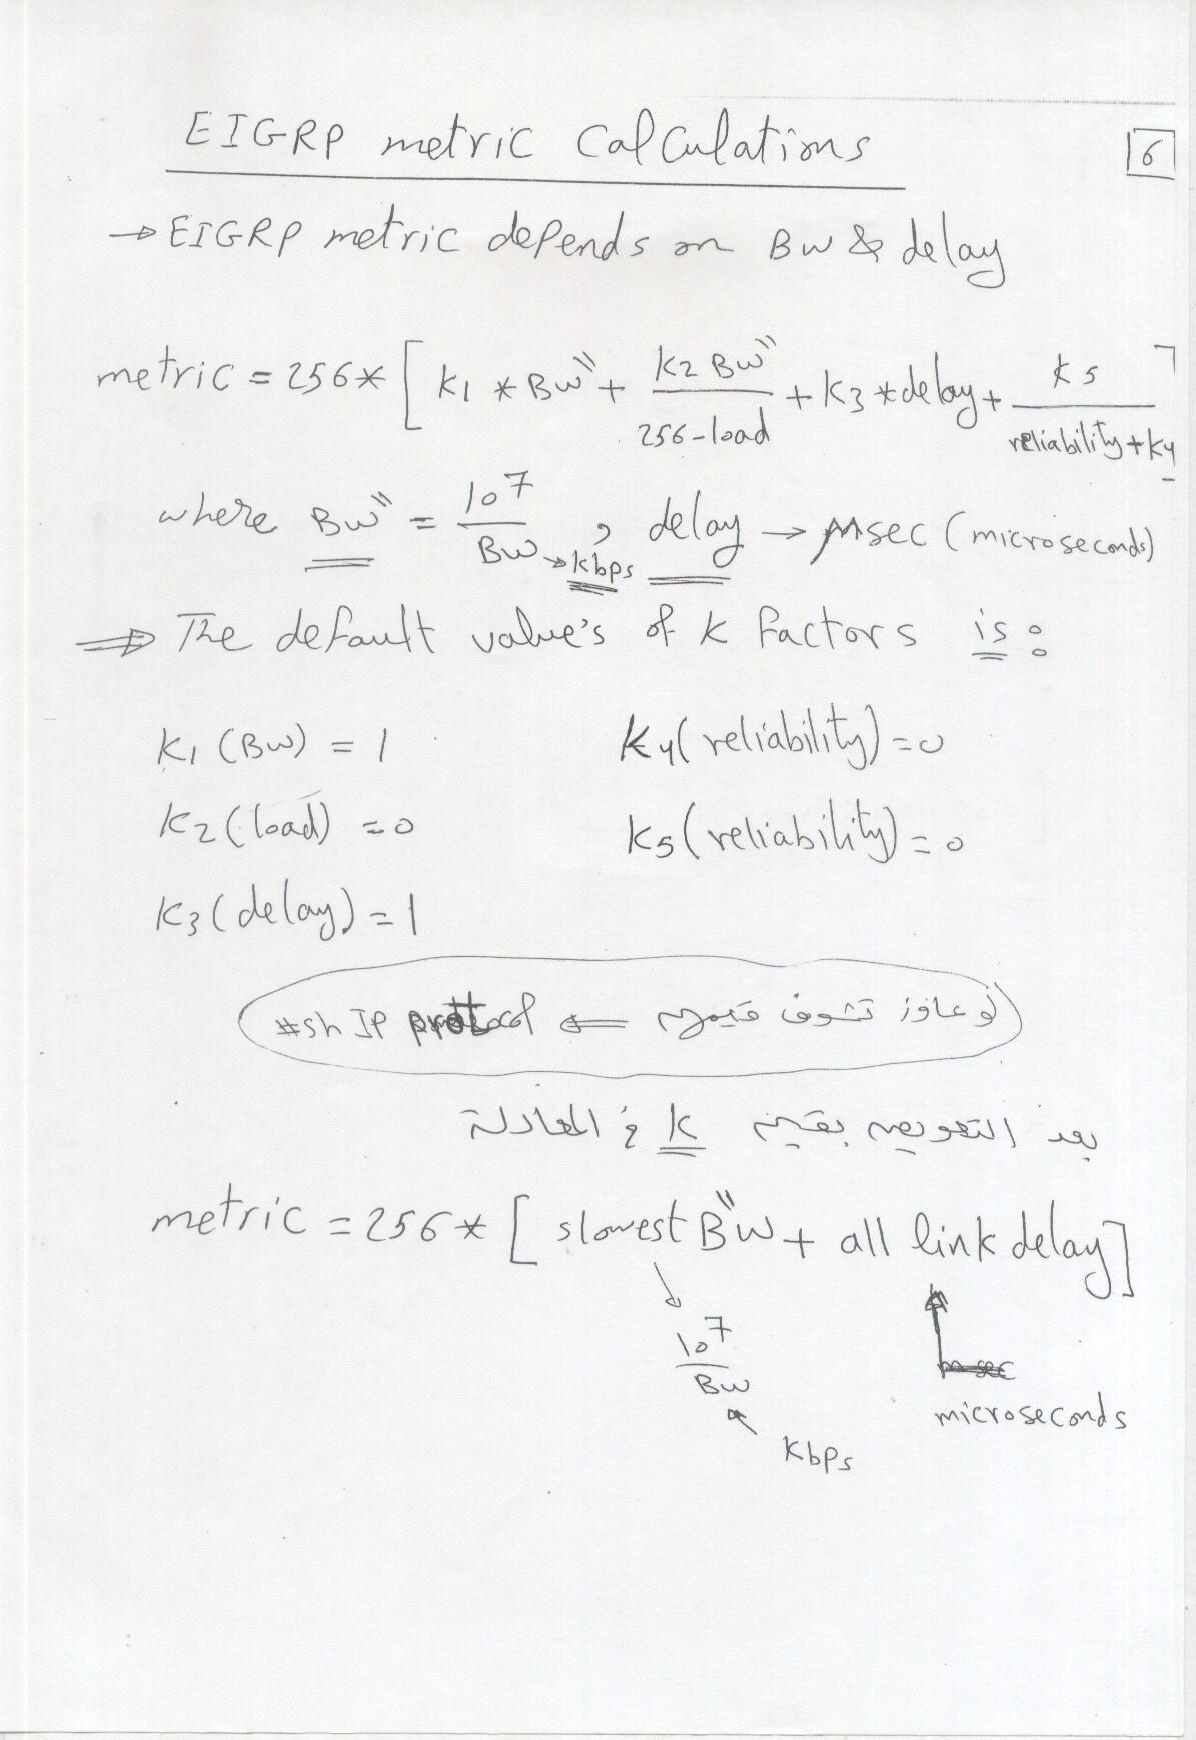 EIGRP metric Calculations
6
→ EIGRP metric depends on BW & delay
metric = 256 * [ K1 * BW" + K2 BW" / 256-load + K3 * delay + K5 / reliability + K4 ]
where BW" = 10^7 / BW → kbps , delay → μsec (microseconds)
⇒ The default value's of K factors is :
K1 (BW) = 1
K2 (load) = 0
K3 (delay) = 1
K4 (reliability) = 0
K5 (reliability) = 0
لو عاوز تشوف قيمهم ⇐ #sh IP protocol
بعد التعويض بقيم K في المعادلة
metric = 256 * [ slowest BW" + all link delay ]
10^7 / BW
kbps
microseconds